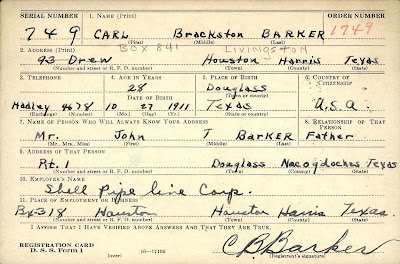 SERIAL NUMBER 1. NAME (Print) ORDER NUMBER
749 CARL Brackston BARKER 1749
(First) (Middle) (Last)
2. ADDRESS (Print) BOX 841 LIVINGSTON
93 Drew Houston Harris Texas
(Number and street or R. F. D. number) (Town) (County) (State)
3. TELEPHONE 4. AGE IN YEARS 5. PLACE OF BIRTH 6. COUNTRY OF CITIZENSHIP
28 Douglass
DATE OF BIRTH (Town or county)
Hadley 4678 10 27 1911 Texas U.S.A.
(Exchange) (Number) (Mo.) (Day) (Yr.) (State or country)
7. NAME OF PERSON WHO WILL ALWAYS KNOW YOUR ADDRESS 8. RELATIONSHIP OF THAT PERSON
Mr. John T BARKER Father
(Mr., Mrs., Miss) (First) (Middle) (Last)
9. ADDRESS OF THAT PERSON
Rt. 1 Douglass Nacogdoches Texas
(Number and street or R. F. D. number) (Town) (County) (State)
10. EMPLOYER'S NAME
Shell Pipe Line Corp.
11. PLACE OF EMPLOYMENT OR BUSINESS
Bx-318 Houston Houston Harris Texas.
(Number and street or R. F. D. number) (Town) (County) (State)
I AFFIRM THAT I HAVE VERIFIED ABOVE ANSWERS AND THAT THEY ARE TRUE.
REGISTRATION CARD
D. S. S. Form 1 (over) 16—17105 C B Barker
(Registrant's signature)